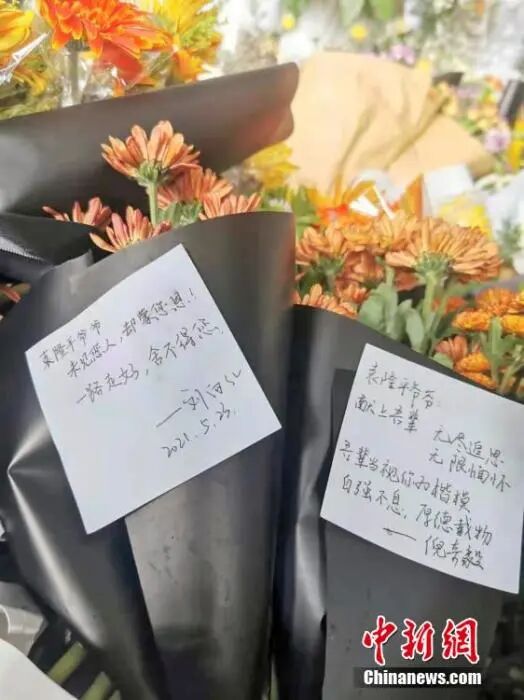 袁隆平爷爷
未见您人，却蒙您恩！
一路走好，舍不得您，
2021.5.23.
袁隆平爷爷：
献上吾辈 无尽追思
无限缅怀
吾辈当视你为楷模
自强不息，厚德载物
—倪奇毅
中新网®
Chinanews.com